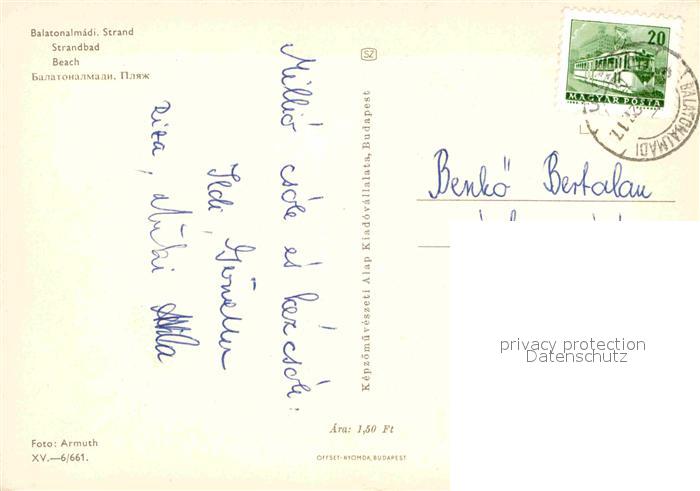 Balatonalmádi. Strand
Strandbad
Beach
Балатоналмади, Пляж
SZ
20
MAGYAR POSTA
BALATONALMÁDI
17.
Millió csók és kézcsók:
Ildi,
Rita, Muki
Benkő Bertalan
Képzőművészeti Alap Kiadóvállalata, Budapest
privacy protection
Datenschutz
Ára: 1,50 Ft
Foto: Armuth
XV.—6/661.
OFFSET-NYOMDA, BUDAPEST